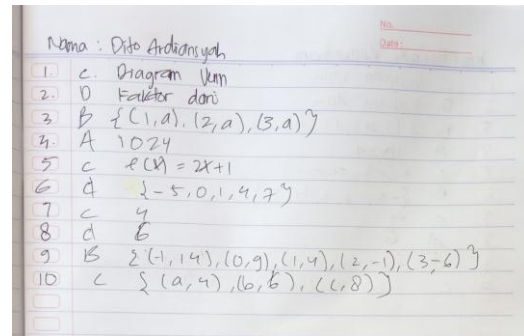 No.
Date:
Nama : Dito Ardiansyah
1. C. Diagram Venn
2. D Faktor dari
3 B {(1,a), (2,a), (3,a)}
4. A 1024
5 C f(x) = 2x+1
6 d {-5,0,1,4,7}
7 C 4
8 d 6
9 B {(-1,14), (0,9), (1,4), (2,-1), (3-6)}
10 C {(a,4), (b,6), (c,8)}